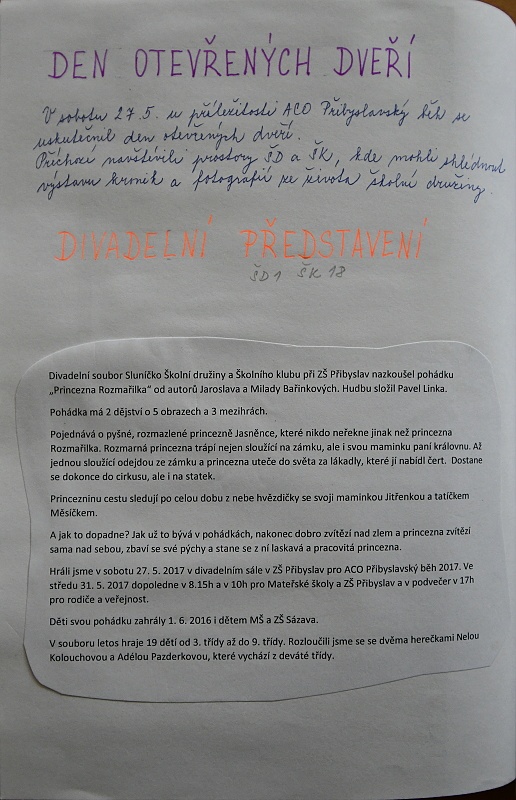 DEN OTEVŘENÝCH DVEŘÍ
V sobotu 27.5. u příležitosti ACO Přibyslavský běh se
uskutečnil den otevřených dveří.
Příchozí navštívili prostory ŠD a ŠK, kde mohli shlédnout
výstavu kronik a fotografií ze života školní družiny.
DIVADELNÍ PŘEDSTAVENÍ
ŠD1 ŠK 18
Divadelní soubor Sluníčko Školní družiny a Školního klubu při ZŠ Přibyslav nazkoušel pohádku
„Princezna Rozmařilka“ od autorů Jaroslava a Milady Bařinkových. Hudbu složil Pavel Linka.
Pohádka má 2 dějství o 5 obrazech a 3 mezihrách.
Pojednává o pyšné, rozmazlené princezně Jasněnce, které nikdo neřekne jinak než princezna
Rozmařilka. Rozmarná princezna trápí nejen sloužící na zámku, ale i svou maminku paní královnu. Až
jednou sloužící odejdou ze zámku a princezna uteče do světa za lákadly, které jí nabídl čert. Dostane
se dokonce do cirkusu, ale i na statek.
Princezninu cestu sledují po celou dobu z nebe hvězdičky se svojí maminkou Jitřenkou a tatíčkem
Měsíčkem.
A jak to dopadne? Jak už to bývá v pohádkách, nakonec dobro zvítězí nad zlem a princezna zvítězí
sama nad sebou, zbaví se své pýchy a stane se z ní laskavá a pracovitá princezna.
Hráli jsme v sobotu 27. 5. 2017 v divadelním sále v ZŠ Přibyslav pro ACO Přibyslavský běh 2017. Ve
středu 31. 5. 2017 dopoledne v 8.15h a v 10h pro Mateřské školy a ZŠ Přibyslav a v podvečer v 17h
pro rodiče a veřejnost.
Děti svou pohádku zahrály 1. 6. 2016 i dětem MŠ a ZŠ Sázava.
V souboru letos hraje 19 dětí od 3. třídy až do 9. třídy. Rozloučili jsme se se dvěma herečkami Nelou
Kolouchovou a Adélou Pazderkovou, které vychází z deváté třídy.